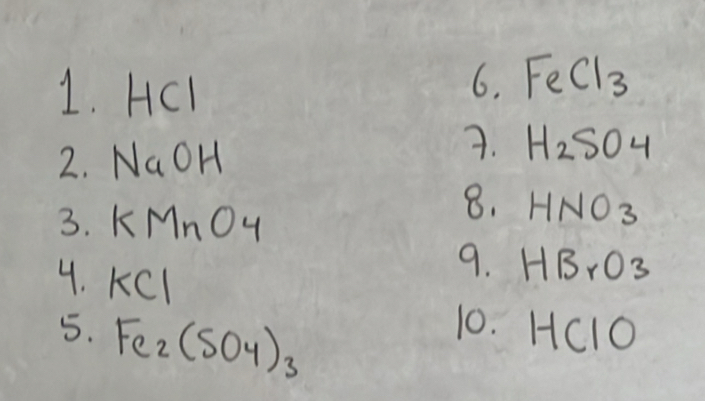 1. HCl
2. NaOH
3. KMnO4
4. KCl
5. Fe2(SO4)3
6. FeCl3
7. H2SO4
8. HNO3
9. HBrO3
10. HClO